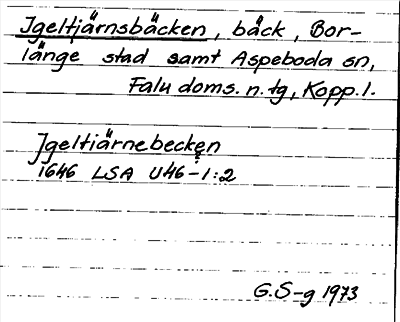 Igeltjärnsbäcken, bäck, Bor-
länge stad samt Aspeboda sn,
Falu doms. n. tg, Kopp. l.
Jgeltiärnebecken
1646 LSA U46-1:2
G.S-g 1973